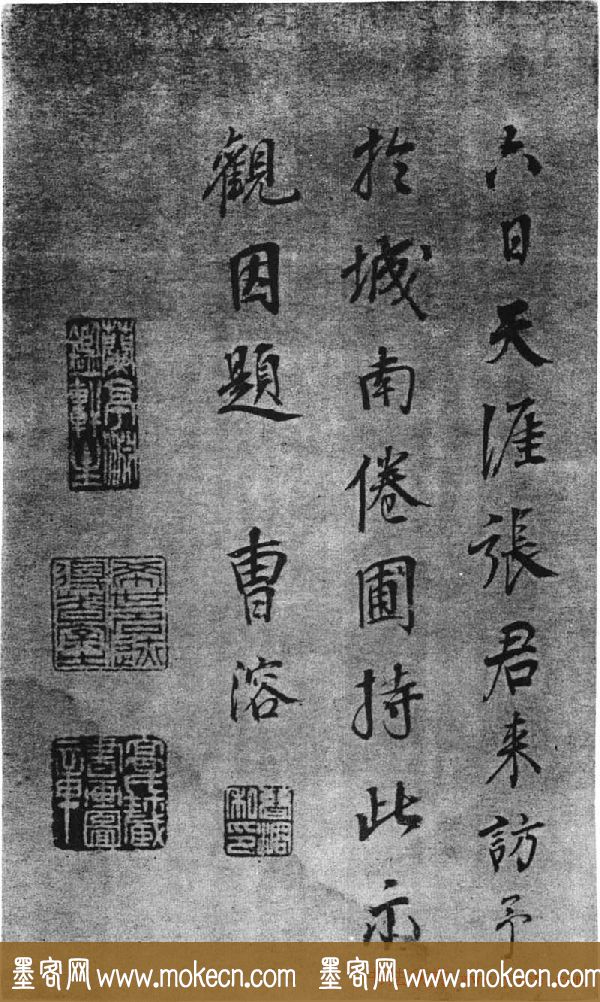 六日天涯張君来訪予
於城南倦圃持此示
觀因題 曹溶
墨客网 www.mokecn.com 墨客网 www.mokecn.com